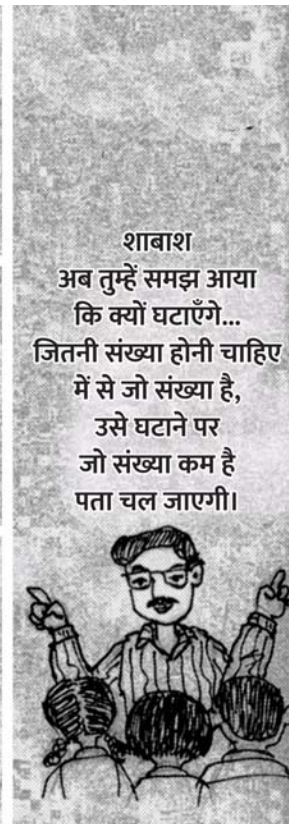 शाबाश
अब तुम्हें समझ आया
कि क्यों घटाएँगे...
जितनी संख्या होनी चाहिए
में से जो संख्या है,
उसे घटाने पर
जो संख्या कम है
पता चल जाएगी।